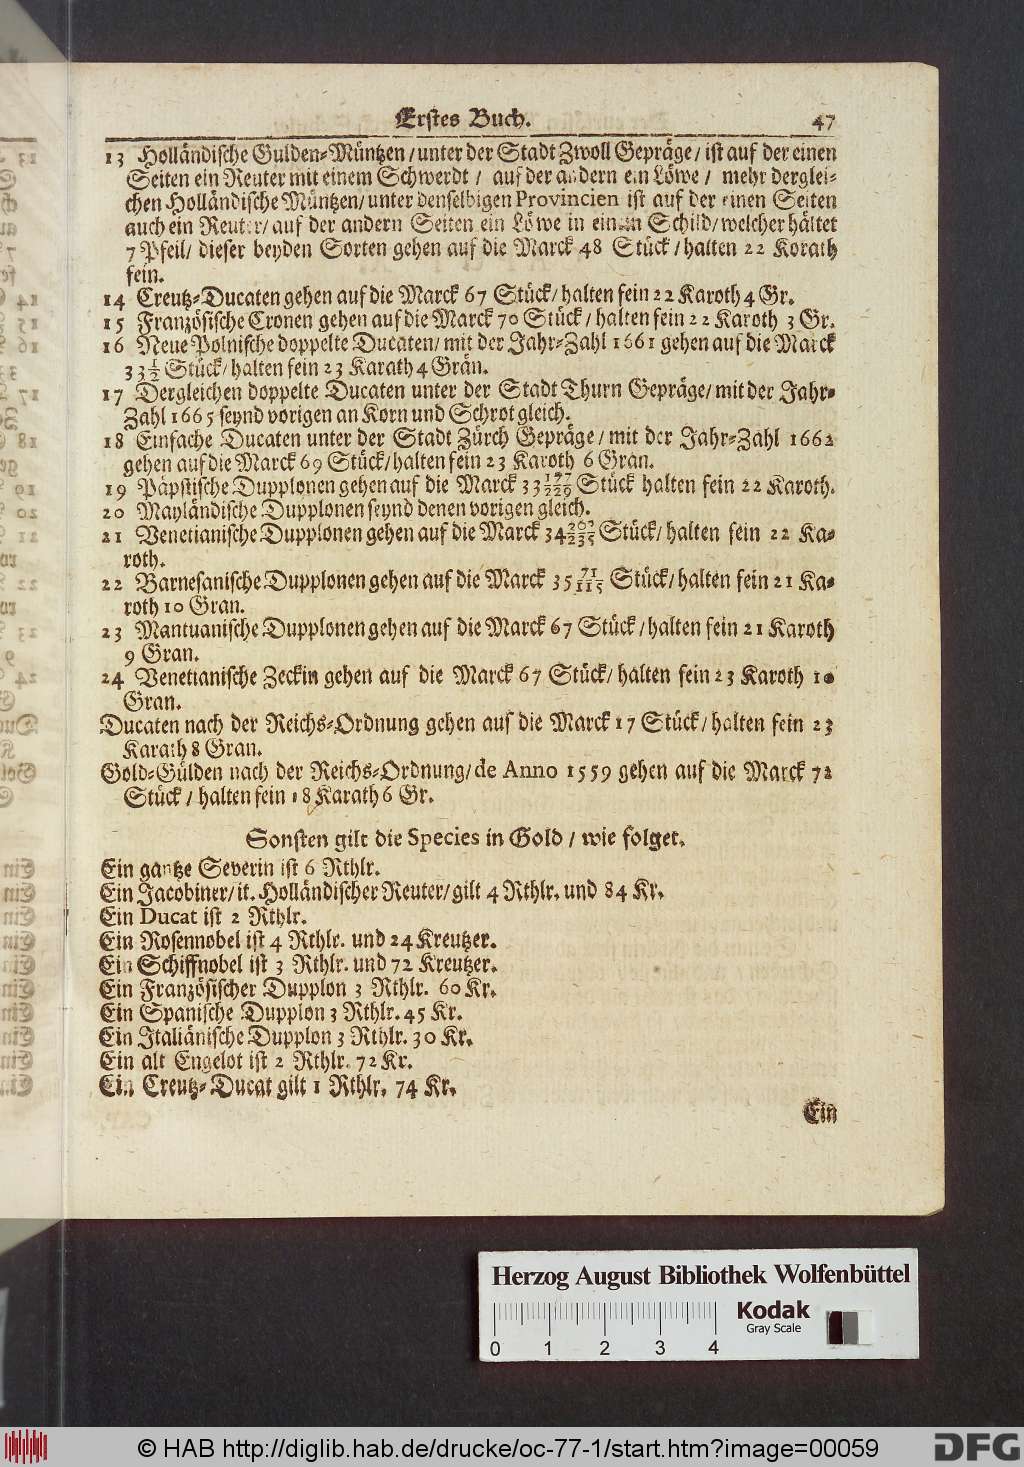 Erstes Buch. 47
13 Holländische Gulden-Müntzen / unter der Stadt Zwoll Gepräge / ist auf der einen
Seiten ein Reuter mit einem Schwerdt / auf der andern ein Löwe / mehr derglei-
chen Holländische Müntzen / unter denselbigen Provincien ist auf der einen Seiten
auch ein Reuter / auf der andern Seiten ein Löwe in einem Schild / welcher hältet
7 Pfeil / dieser beyden Sorten gehen auf die Marck 48 Stück / halten 22 Korath
fein.
14 Creutz-Ducaten gehen auf die Marck 67 Stück / halten fein 22 Karoth 4 Gr.
15 Französische Cronen gehen auf die Marck 70 Stück / halten fein 22 Karoth 3 Gr.
16 Neue Polnische doppelte Ducaten / mit der Jahr-Zahl 1661 gehen auf die Marck
33 1/2 Stück / halten fein 23 Karath 4 Grän.
17 Dergleichen doppelte Ducaten unter der Stadt Thurn Gepräge / mit der Jahr-
Zahl 1665 seynd vorigen an Korn und Schrot gleich.
18 Einfache Ducaten unter der Stadt Zürch Gepräge / mit der Jahr-Zahl 1662
gehen auf die Marck 69 Stück / halten fein 23 Karoth 6 Gran.
19 Päpstische Dupplonen gehen auf die Marck 33 Stück halten fein 22 Karoth.
20 Mayländische Dupplonen seynd denen vorigen gleich.
21 Venetianische Dupplonen gehen auf die Marck 34 Stück / halten fein 22 Ka-
roth.
22 Barnesanische Dupplonen gehen auf die Marck 35 71/115 Stück / halten fein 21 Ka-
roth 10 Gran.
23 Mantuanische Dupplonen gehen auf die Marck 67 Stück / halten fein 21 Karoth
9 Gran.
24 Venetianische Zeckin gehen auf die Marck 67 Stück / halten fein 23 Karoth 10
Gran.
Ducaten nach der Reichs-Ordnung gehen auf die Marck 17 Stück / halten fein 23
Karath 8 Gran.
Gold-Gülden nach der Reichs-Ordnung / de Anno 1559 gehen auf die Marck 72
Stück / halten fein 18 Karath 6 Gr.
Sonsten gilt die Species in Gold / wie folget.
Ein gantze Severin ist 6 Rthlr.
Ein Jacobiner / it. Holländischer Reuter / gilt 4 Rthlr. und 84 Kr.
Ein Ducat ist 2 Rthlr.
Ein Rosennobel ist 4 Rthlr. und 24 Kreutzer.
Ein Schiffnobel ist 3 Rthlr. und 72 Kreutzer.
Ein Französischer Dupplon 3 Rthlr. 60 Kr.
Ein Spanische Dupplon 3 Rthlr. 45 Kr.
Ein Italiänische Dupplon 3 Rthlr. 30 Kr.
Ein alt Engelot ist 2 Rthlr. 72 Kr.
Ein Creutz-Ducat gilt 1 Rthlr. 74 Kr.
Ein
Herzog August Bibliothek Wolfenbüttel
Kodak
Gray Scale
0 1 2 3 4
© HAB http://diglib.hab.de/drucke/oc-77-1/start.htm?image=00059
DFG